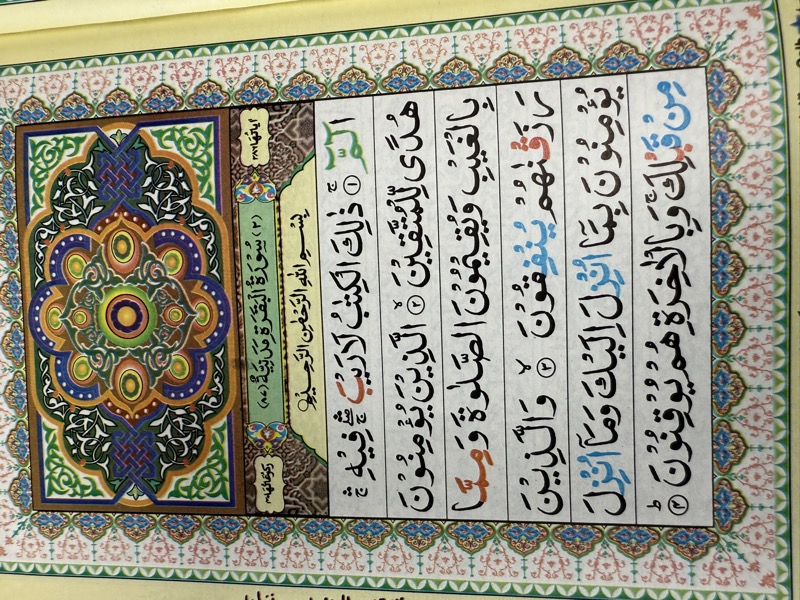 اٰيَاتُهَا ٢٨٦ (٢) سُوْرَةُ الْبَقَرَةِ مَدَنِيَّةٌ (٨٧) رُكُوْعَاتُهَا ٤٠
بِسْمِ اللهِ الرَّحْمٰنِ الرَّحِيْمِ
الٓمّٓ ۚ ١ ذٰلِكَ الْكِتٰبُ لَا رَيْبَ ۛۖۚ فِيْهِ ۛۚ
هُدًى لِّلْمُتَّقِيْنَ ۙ ٢ الَّذِيْنَ يُؤْمِنُوْنَ
بِالْغَيْبِ وَيُقِيْمُوْنَ الصَّلٰوةَ وَمِمَّا
رَزَقْنٰهُمْ يُنْفِقُوْنَ ۙ ٣ وَالَّذِيْنَ
يُؤْمِنُوْنَ بِمَآ اُنْزِلَ اِلَيْكَ وَمَآ اُنْزِلَ
مِنْ قَبْلِكَ ۚ وَبِالْاٰخِرَةِ هُمْ يُوْقِنُوْنَ ؕ ٤